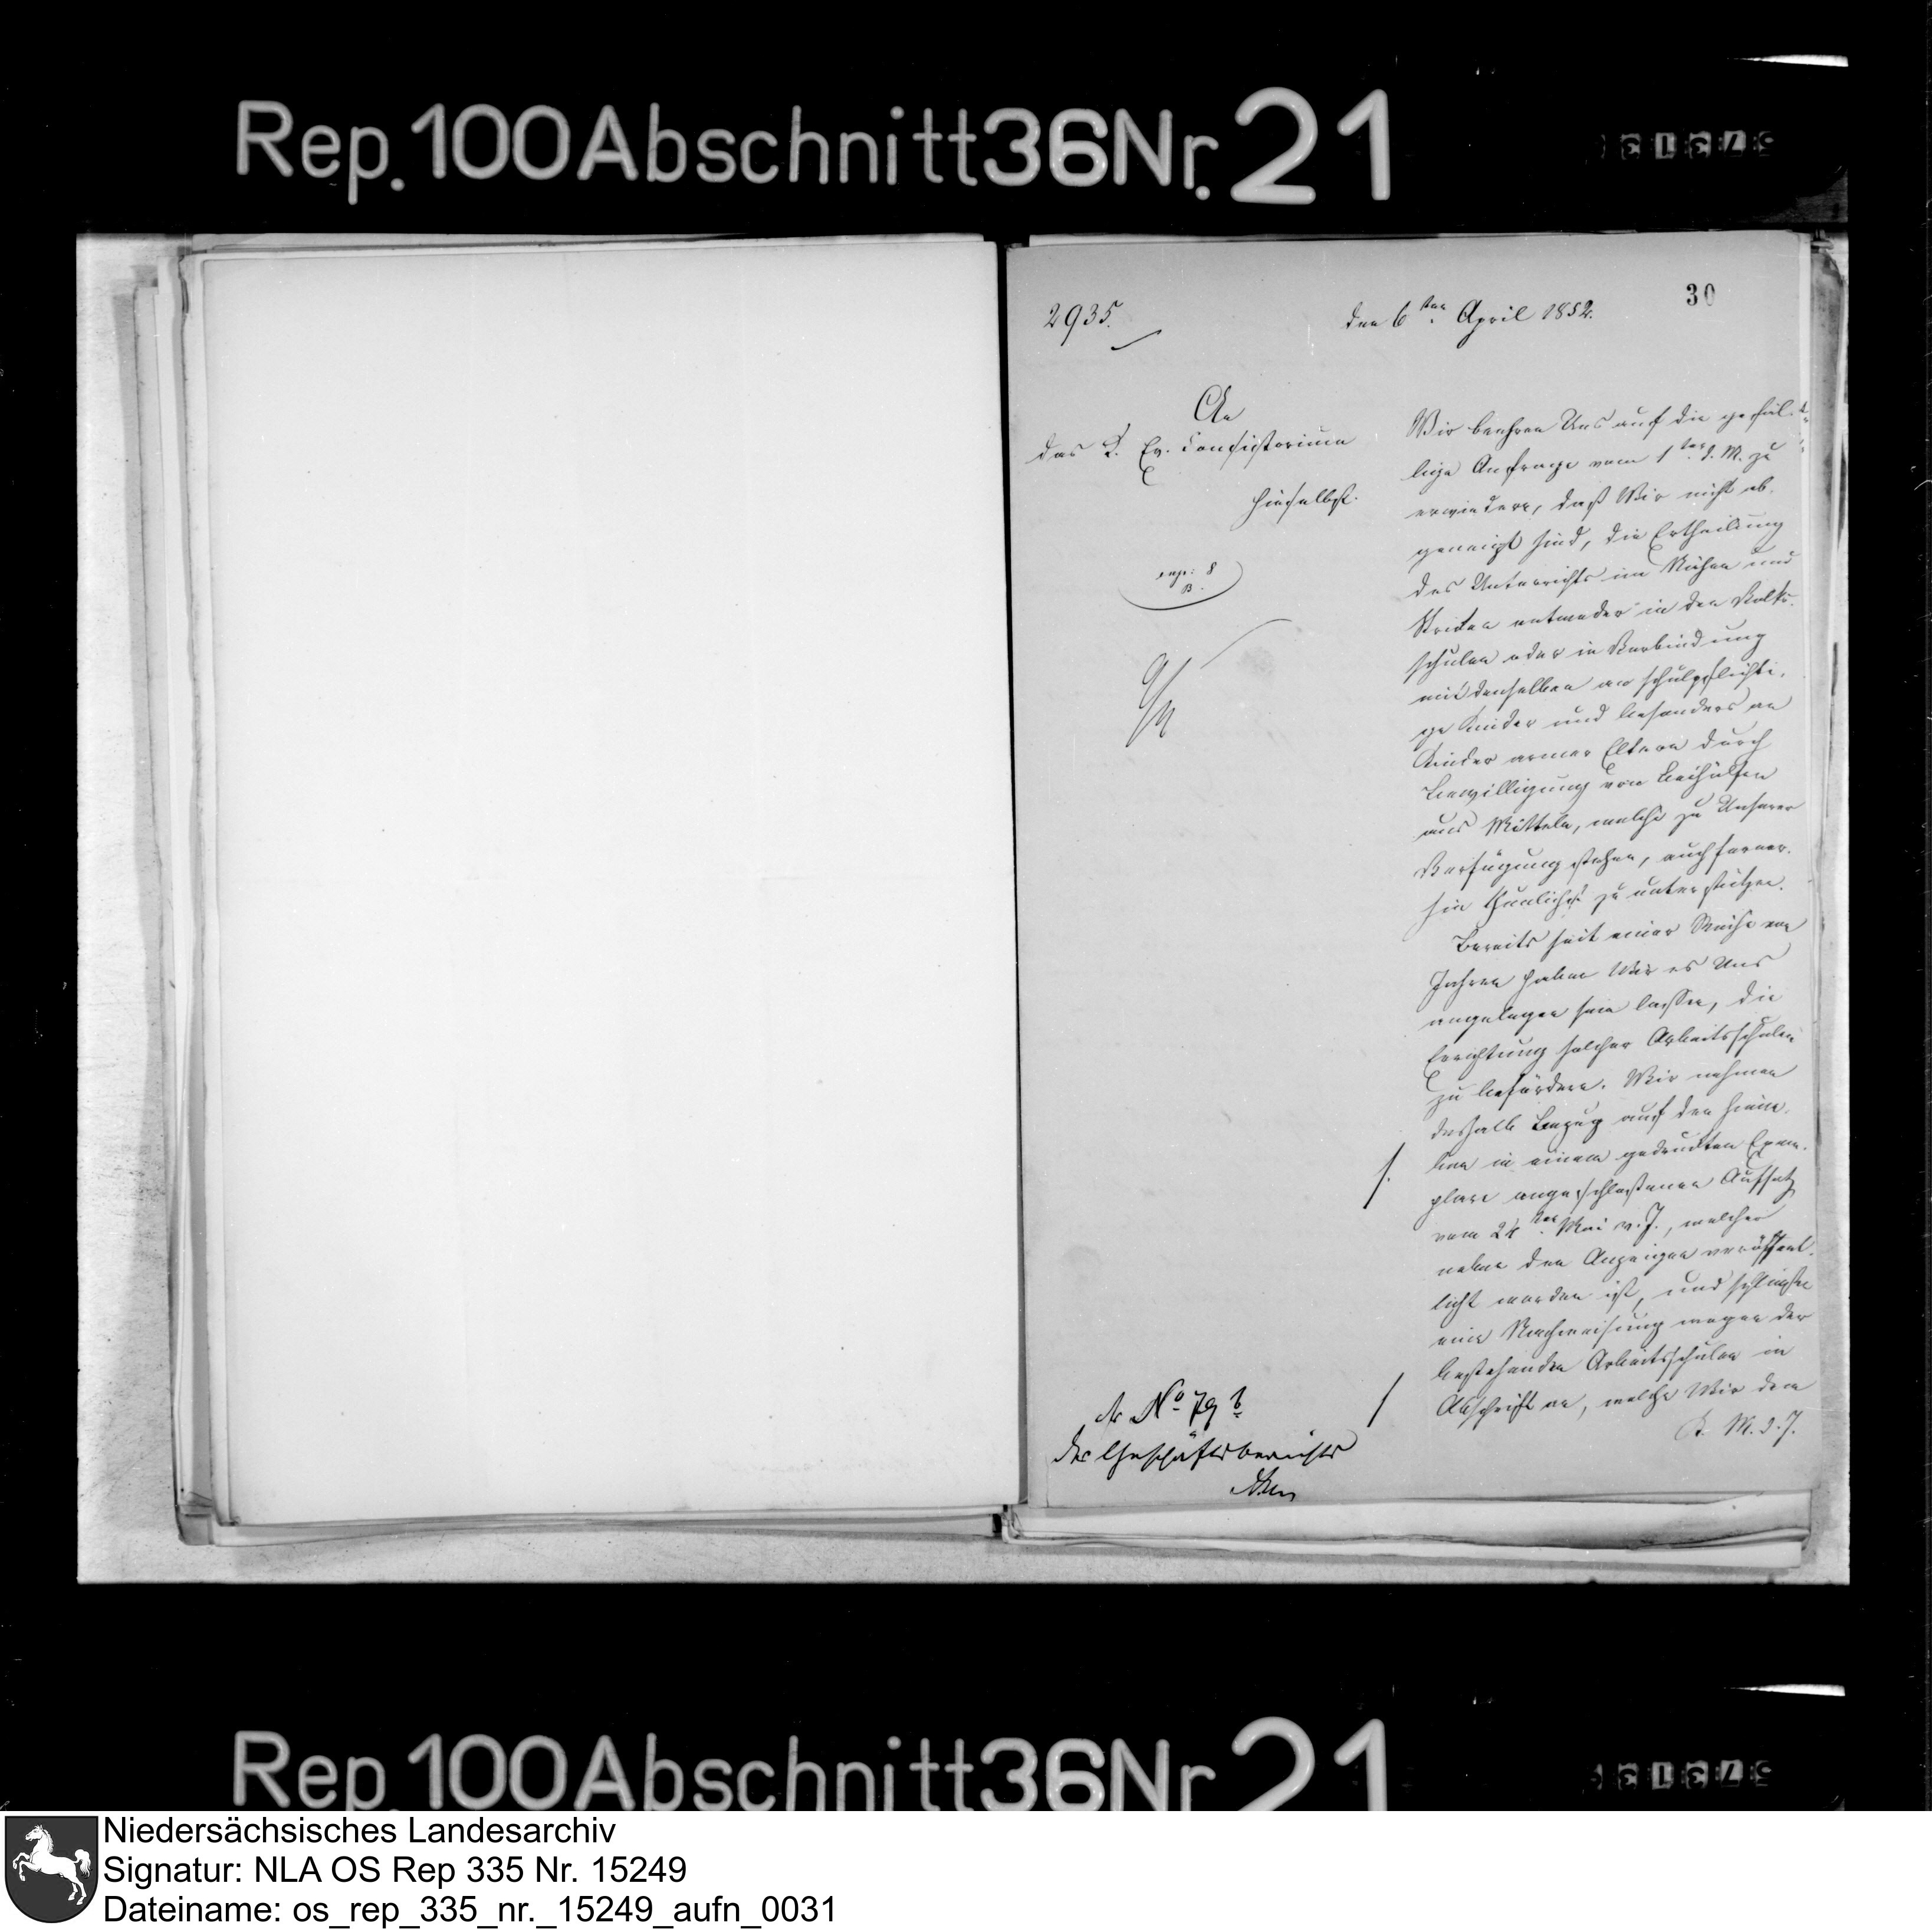 Rep. 100 Abschnitt 36 Nr. 21
30
2935.
den 6ten April 1852.
An
das K. Ev. Consistorium
hieselbst.
exp: 8
B.
9/4
Wir beehren Uns auf die gefäl-
lige Anfrage vom 1ten d. M. zu
erwiedern, daß Wir nicht ab-
geneigt sind, die Ertheilung
des Unterrichts im Nähen und
Stricken entweder in den Volks-
schulen oder in Verbindung
mit denselben an schulpflichti-
ge Kinder und besonders an
Kinder armer Eltern durch
Bewilligung von Beihülfen
aus Mitteln, welche zu Unserer
Verfügung stehen, auch ferner-
hin thunlichst zu unterstützen.
Bereits seit einer Reihe von
Jahren haben Wir es Uns
angelegen sein lassen, die
Errichtung solcher Arbeitsschulen
zu befördern. Wir nehmen
deshalb Bezug auf den hierne-
ben in einem gedruckten Exem-
plare angeschlossenen Aufsatz
vom 24ten Mai v. J., welcher
neben den Anzeigen veröffent-
licht worden ist, und schließen
eine Nachweisung wegen der
bestehenden Arbeitsschulen in
Abschrift an, welche Wir dem
K. M. d. J.
No 79 b
des Geschäftsberichts
Rep. 100 Abschnitt 36 Nr. 21
Niedersächsisches Landesarchiv
Signatur: NLA OS Rep 335 Nr. 15249
Dateiname: os_rep_335_nr._15249_aufn_0031